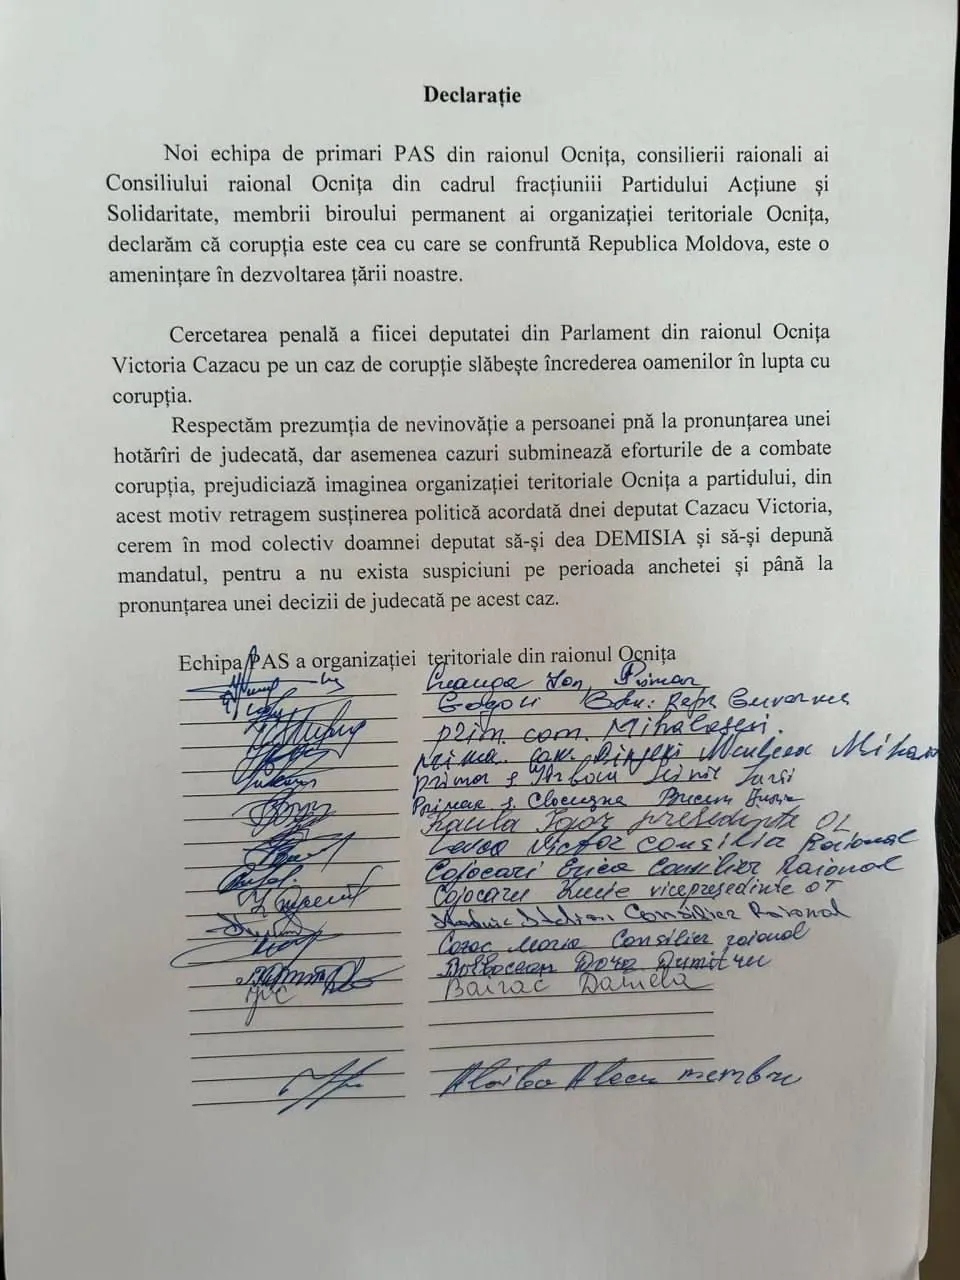 Declarație
Noi echipa de primari PAS din raionul Ocnița, consilierii raionali ai
Consiliului raional Ocnița din cadrul fracțiuniii Partidului Acțiune și
Solidaritate, membrii biroului permanent ai organizației teritoriale Ocnița,
declarăm că corupția este cea cu care se confruntă Republica Moldova, este o
amenințare în dezvoltarea țării noastre.
Cercetarea penală a fiicei deputatei din Parlament din raionul Ocnița
Victoria Cazacu pe un caz de corupție slăbește încrederea oamenilor în lupta cu
corupția.
Respectăm prezumția de nevinovăție a persoanei pnă la pronunțarea unei
hotărîri de judecată, dar asemenea cazuri subminează eforturile de a combate
corupția, prejudiciază imaginea organizației teritoriale Ocnița a partidului, din
acest motiv retragem susținerea politică acordată dnei deputat Cazacu Victoria,
cerem în mod colectiv doamnei deputat să-și dea DEMISIA și să-și depună
mandatul, pentru a nu exista suspiciuni pe perioada anchetei și până la
pronunțarea unei decizii de judecată pe acest caz.
Echipa PAS a organizației teritoriale din raionul Ocnița
Ion, Primar
prim. com. Mihălășeni
primar s.
Primar s.
Igor președinte OL
Victor consilier Raional
Cojocari Consilier Raional
Cojocaru vicepreședinte OT
Consilier Raional
Maria Consilier raional
Dumitru
Bairac Daniela
membru